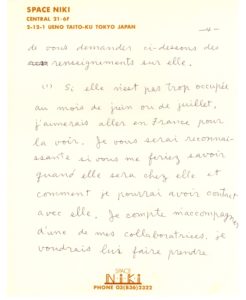 SPACE NIKI
CENTRAL 21-6F
2-12-1 UENO TAITO-KU TOKYO JAPAN
de vous demander ci-dessous des
renseignements sur elle.
(1) Si elle n'est pas trop occupée
au mois de juin ou de juillet,
j'aimerais aller en France pour
la voir. Je vous serai reconnai-
ssante si vous me feriez savoir
quand elle sera chez elle et
comment je pourrai avoir contact
avec elle. Je compte m'accompagner
d'une de mes collaboratrices, je
voudrais lui faire prendre
SPACE
NiKi
PHONE 03(836)2322